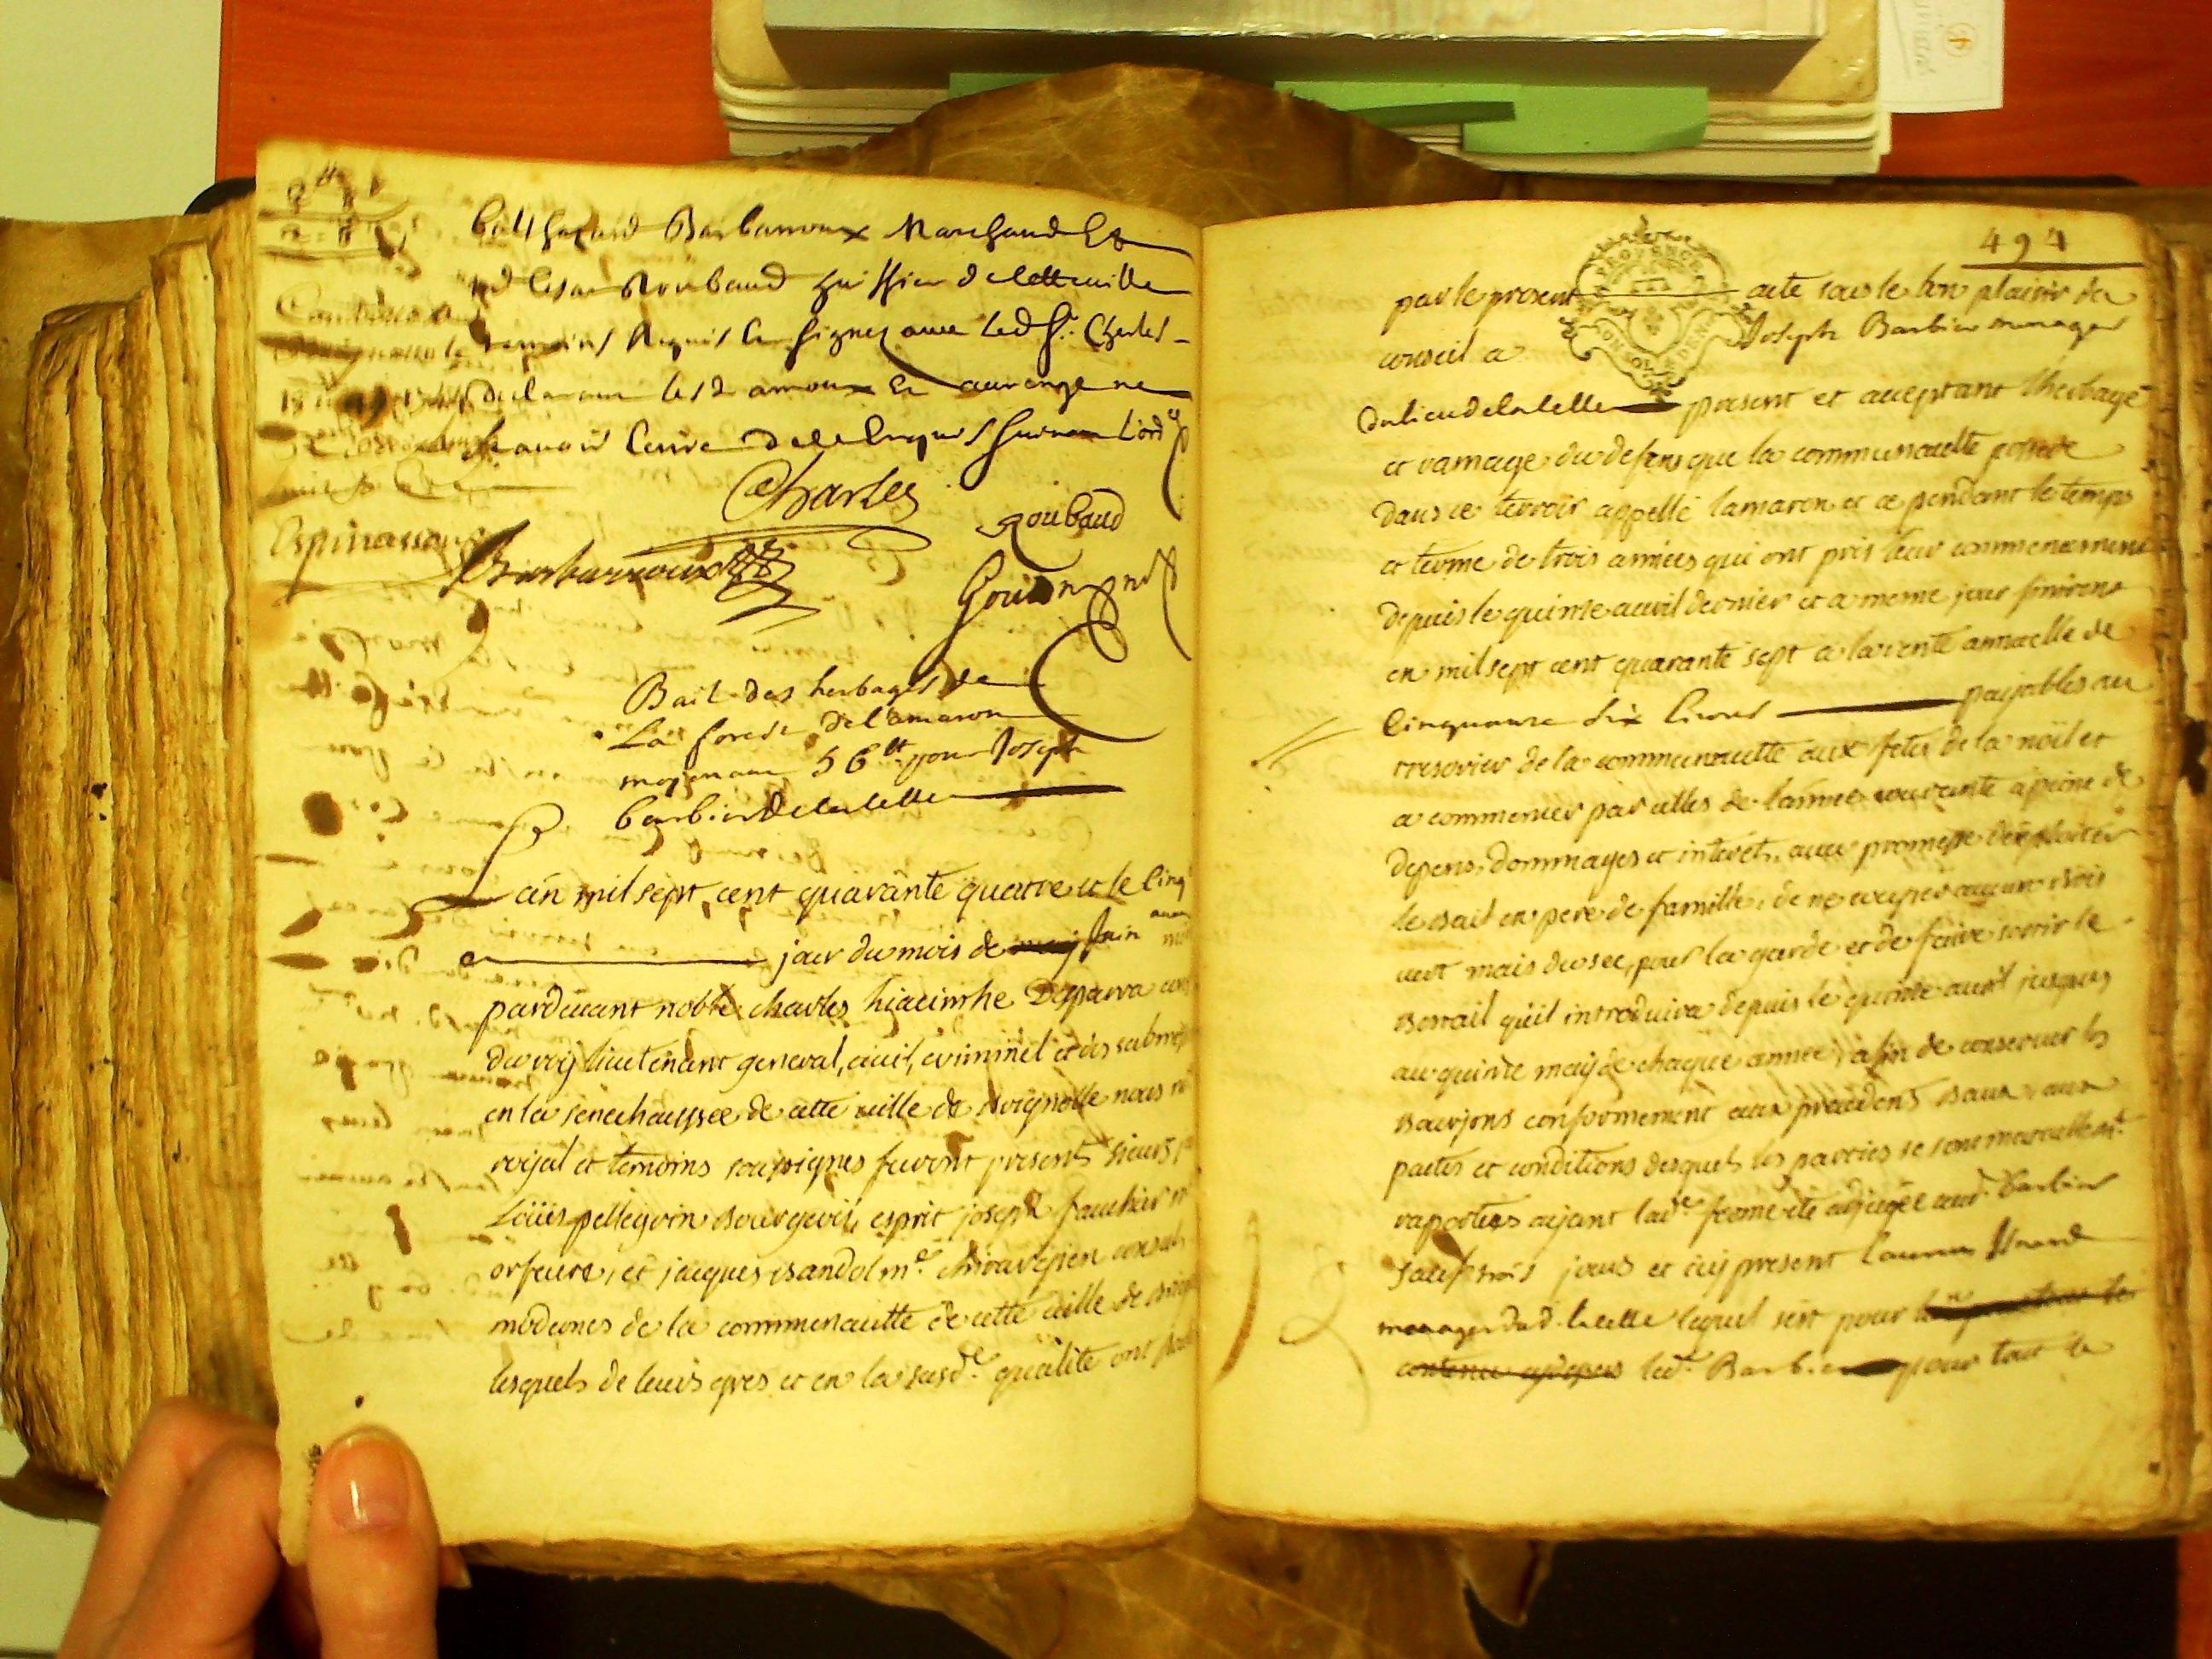 balthasard Barbarroux Marchand Et
Cesar Roubaud huissier de cette ville
temoins Requis Et signez avec led Sr. Charles
declarant les d arnoux Et aurenge ne
scavoir Ecrire de ce Enquis suivant l'ord
Charles
Roubaud
Espinassan
Barbarroux
Gouian
Bail des herbages de
La forest de lamaron
moyenant 56lt pour Joseph
barbier de la celle
Lan mil sept cent quarante quatre et le Cinq
e jour du mois de may Juin
pardevant noble charles hiacinthe Deparra
du roy lieutenant general, civil, criminel et des submi
en la senechaussee de cette ville de Brignolle nous
royal et temoins soussignes furent presents sieurs
Loüis pellegrin Bourgeois, esprit joseph fauchier
orfeuvre, et jacques Bandol me. chirurgien consuls
modernes de la communautte de cette ville de Brig
lesquels de leurs gres et en la susde. qualite ont
494
PROVENCE
par le present acte sous le bon plaisir du
conseil a Joseph Barbier menager
du lieu de la celle present et acceptant lherbage
et ramage du defens que la communautte possede
dans ce terroir appellé lamaron et ce pendant le temps
et terme de trois années qui ont pris leur commencement
depuis le quinse avril dernier et a meme jour finiront
en mil sept cent quarante sept a la rente annuelle de
Cinquante six livres payables au
tresorier de la communautte aux fetes de la noël et
a commencer par celles de lannée courante a peine de
depens, dommages et interets, avec promesse dexploiter
le bail en pere de famille, de ne couper aucun bois
vert mais du sec, pour la garde et de faire sortir le
Bestail quil introduira depuis le quinse avril jusques
au quinse may de chaque année, afin de conserver les
Bourjons conformement aux precedens Baux aux
pactes et conditions desquels les parties se sont mutuellemt.
raportées ayant lade. ferme eté adjugée aud. Barbier
jours et icy present
menager dud. la celle lequel s'est pour
led. Barbier pour tout le